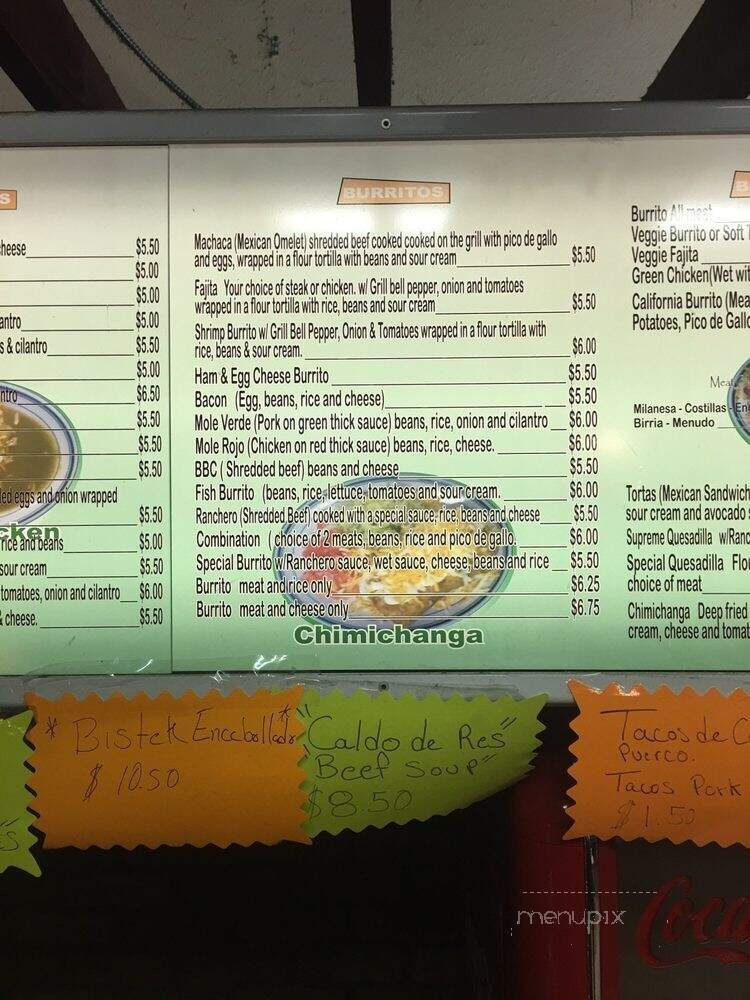 S
cheese $5.50
$5.00
$5.50
antro $5.00
s & cilantro $5.50
$5.00
ntro $6.50
$5.50
$5.50
$5.50
led eggs and onion wrapped
$5.50
cken
rice and beans $5.00
sour cream $5.50
tomatoes, onion and cilantro $6.00
& cheese. $5.50
BURRITOS
Machaca (Mexican Omelet) shredded beef cooked cooked on the grill with pico de gallo
and eggs, wrapped in a flour tortilla with beans and sour cream $5.50
Fajita Your choice of steak or chicken. w/ Grill bell pepper, onion and tomatoes
wrapped in a flour tortilla with rice, beans and sour cream $5.50
Shrimp Burrito w/ Grill Bell Pepper, Onion & Tomatoes wrapped in a flour tortilla with
rice, beans & sour cream. $6.00
Ham & Egg Cheese Burrito $5.50
Bacon (Egg, beans, rice and cheese) $5.50
Mole Verde (Pork on green thick sauce) beans, rice, onion and cilantro $6.00
Mole Rojo (Chicken on red thick sauce) beans, rice, cheese. $6.00
BBC ( Shredded beef) beans and cheese $5.50
Fish Burrito (beans, rice, lettuce, tomatoes and sour cream. $6.00
Ranchero (Shredded Beef) cooked with a special sauce, rice, beans and cheese $5.50
Combination ( choice of 2 meats, beans, rice and pico de gallo. $6.00
Special Burrito w/Ranchero sauce, wet sauce, cheese, beans and rice $5.50
Burrito meat and rice only $6.25
Burrito meat and cheese only $6.75
Chimichanga
B
Burrito All meat
Veggie Burrito or Soft T
Veggie Fajita
Green Chicken(Wet wit
California Burrito (Mea
Potatoes, Pico de Gallo
Meat
Milanesa - Costillas - En
Birria - Menudo
Tortas (Mexican Sandwich
sour cream and avocado s
Supreme Quesadilla w/Ranc
Special Quesadilla Flou
choice of meat
Chimichanga Deep fried
cream, cheese and tomat
* Bistek Encebollado *
$ 10.50
"Caldo de Res"
Beef Soup"
$8.50
Tacos de C
Puerco.
Tacos Pork
$1.50
menupix
Coca